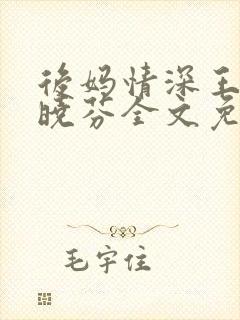 後妈情深王
晓芬全文免
毛宇住